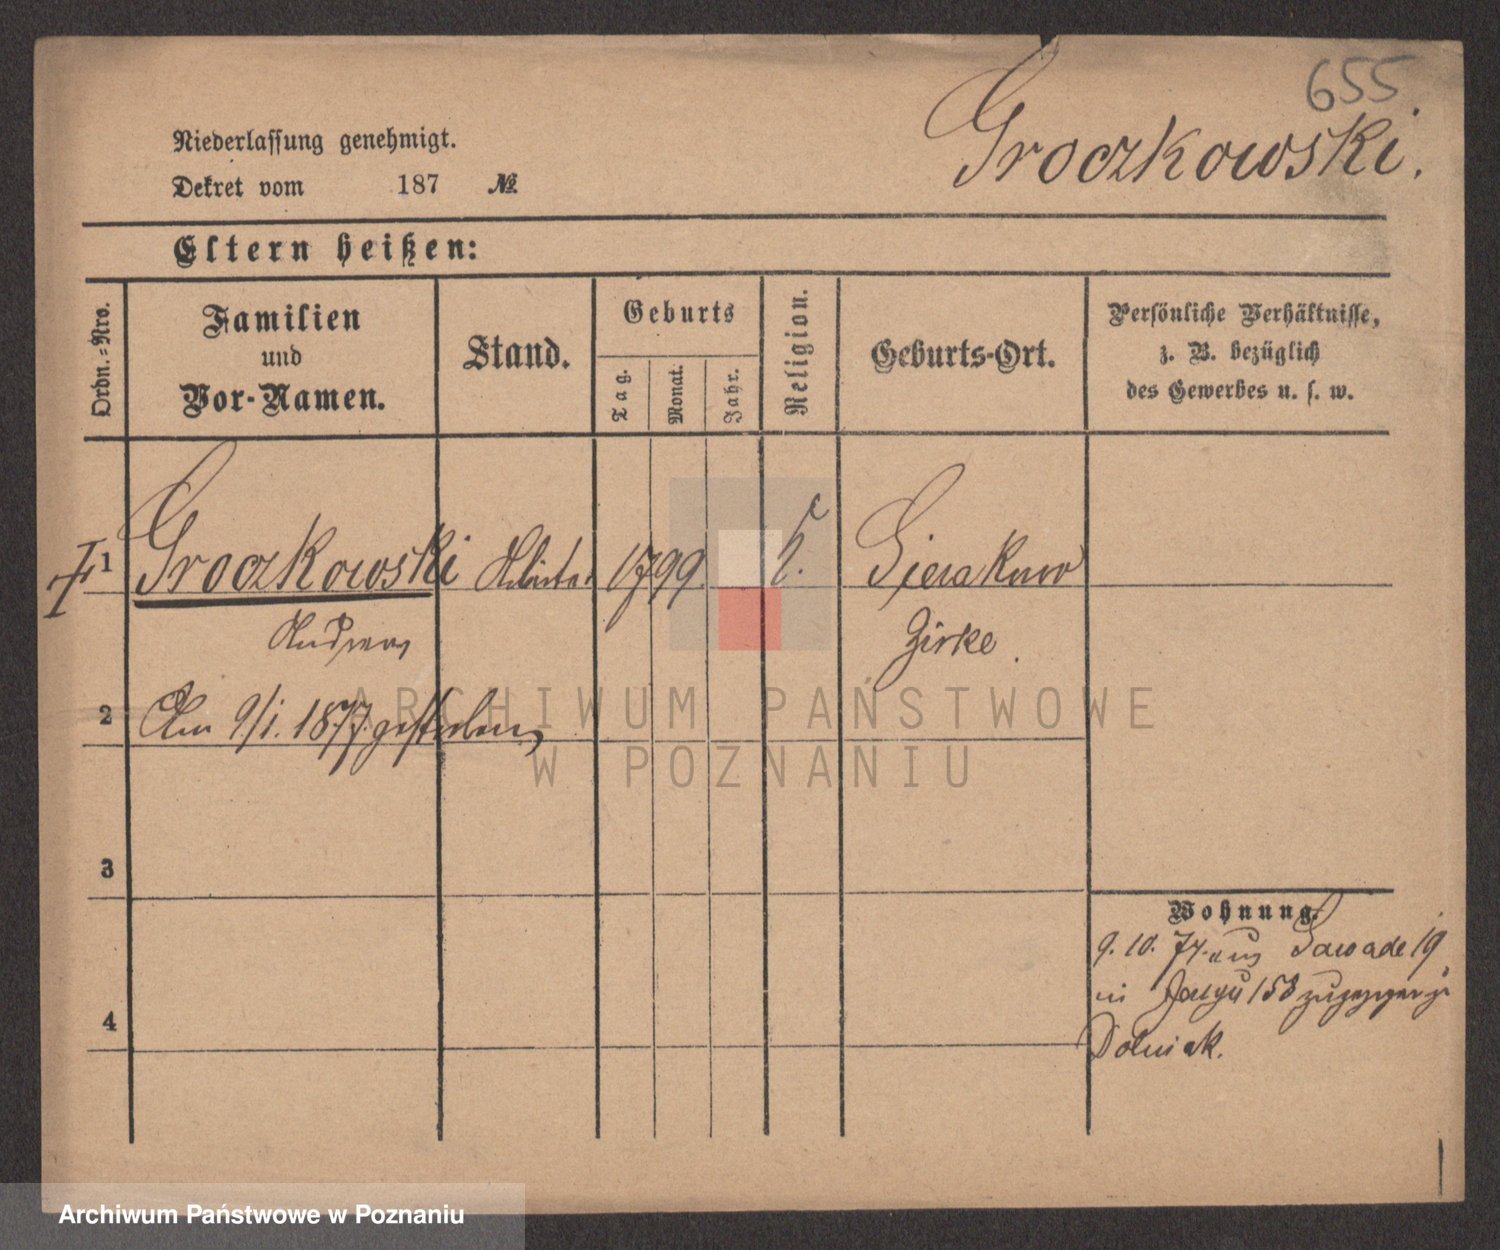 655
Groczkowski.
Niederlassung genehmigt.
Dekret vom 187 №
Eltern heißen:
Ordn.=Nro.
Familien
und
Vor-Namen.
Stand.
Geburts
Tag.
Monat.
Jahr.
Religion.
Geburts-Ort.
Persönliche Verhältnisse,
z. B. bezüglich
des Gewerbes u. s. w.
1 Groczkowski 1799. Sierakow
Andreas Zirke.
2 Am 9/1. 1877 gestorben,
3
Wohnung.
9. 10. 74. aus Zawade 19
in 158 zugezogen
4
Dolniak.
ARCHIWUM PAŃSTWOWE
W POZNANIU
Archiwum Państwowe w Poznaniu